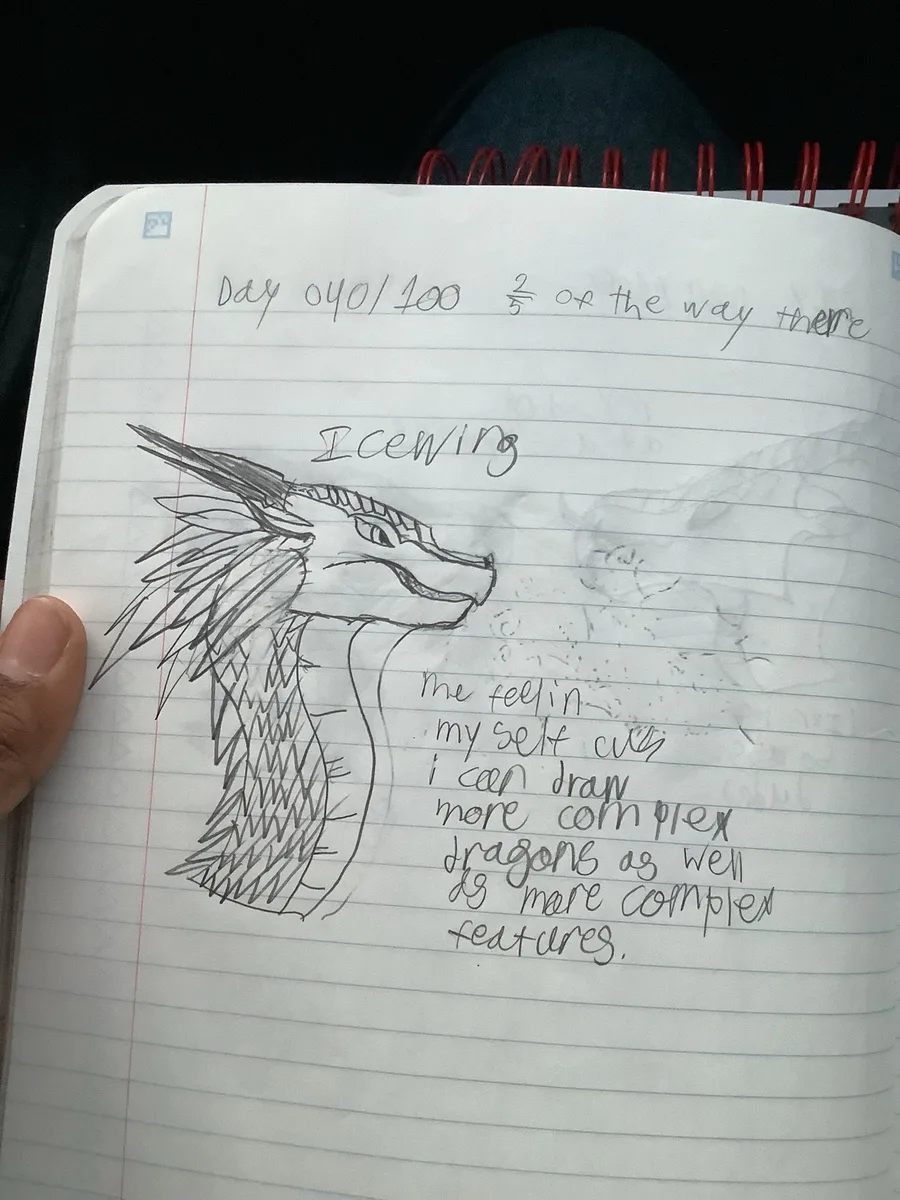 Day 040/100 2/5 of the way there
Icewing
me feelin
my self cus
i can draw
more complex
dragons as well
as more complex
features.